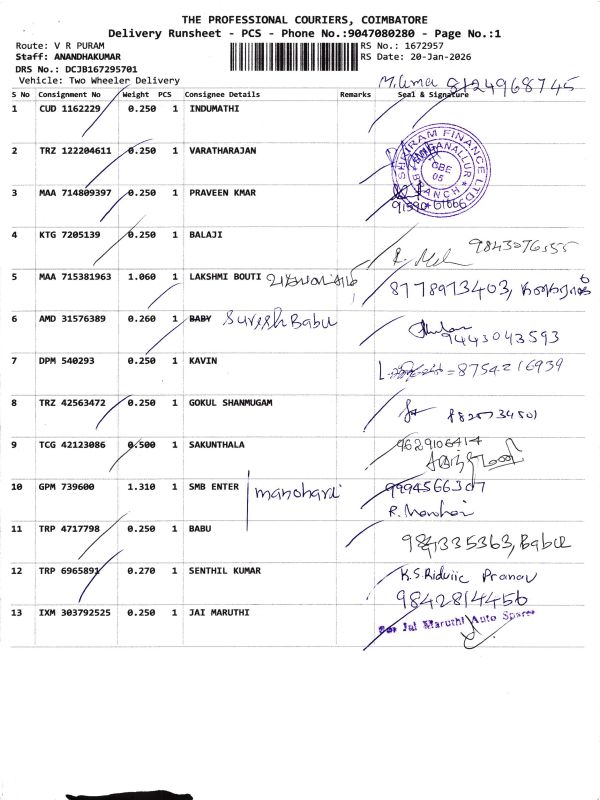 THE PROFESSIONAL COURIERS, COIMBATORE
Delivery Runsheet - PCS - Phone No.:9047080280 - Page No.:1
Route: V R PURAM RS No.: 1672957
Staff: ANANDHAKUMAR RS Date: 20-Jan-2026
DRS No.: DCJB167295701
Vehicle: Two Wheeler Delivery
S No Consignment No Weight PCS Consignee Details Remarks Seal & Signature
M. Uma 8124968745
1 CUD 1162229 0.250 1 INDUMATHI
2 TRZ 122204611 0.250 1 VARATHARAJAN
SHRIRAM FINANCE LTD
SINGANALLUR
OBE
05
BRANCH
3 MAA 714809397 0.250 1 PRAVEEN KMAR
91590 61666
4 KTG 7205139 0.250 1 BALAJI
9843076555
5 MAA 715381963 1.060 1 LAKSHMI BOUTI
8778973403,
6 AMD 31576389 0.260 1 BABY Suresh Babu
9443043593
7 DPM 540293 0.250 1 KAVIN
= 8754216939
8 TRZ 42563472 0.250 1 GOKUL SHANMUGAM
9 TCG 42123086 0.500 1 SAKUNTHALA
9629106414
10 GPM 739600 1.310 1 SMB ENTER manohari
9994566307
R. Manohari
11 TRP 4717798 0.250 1 BABU
Babu
12 TRP 6965891 0.270 1 SENTHIL KUMAR
K.S. Pranav
9842814456
13 IXM 303792525 0.250 1 JAI MARUTHI
For Jai Maruthi Auto Spares